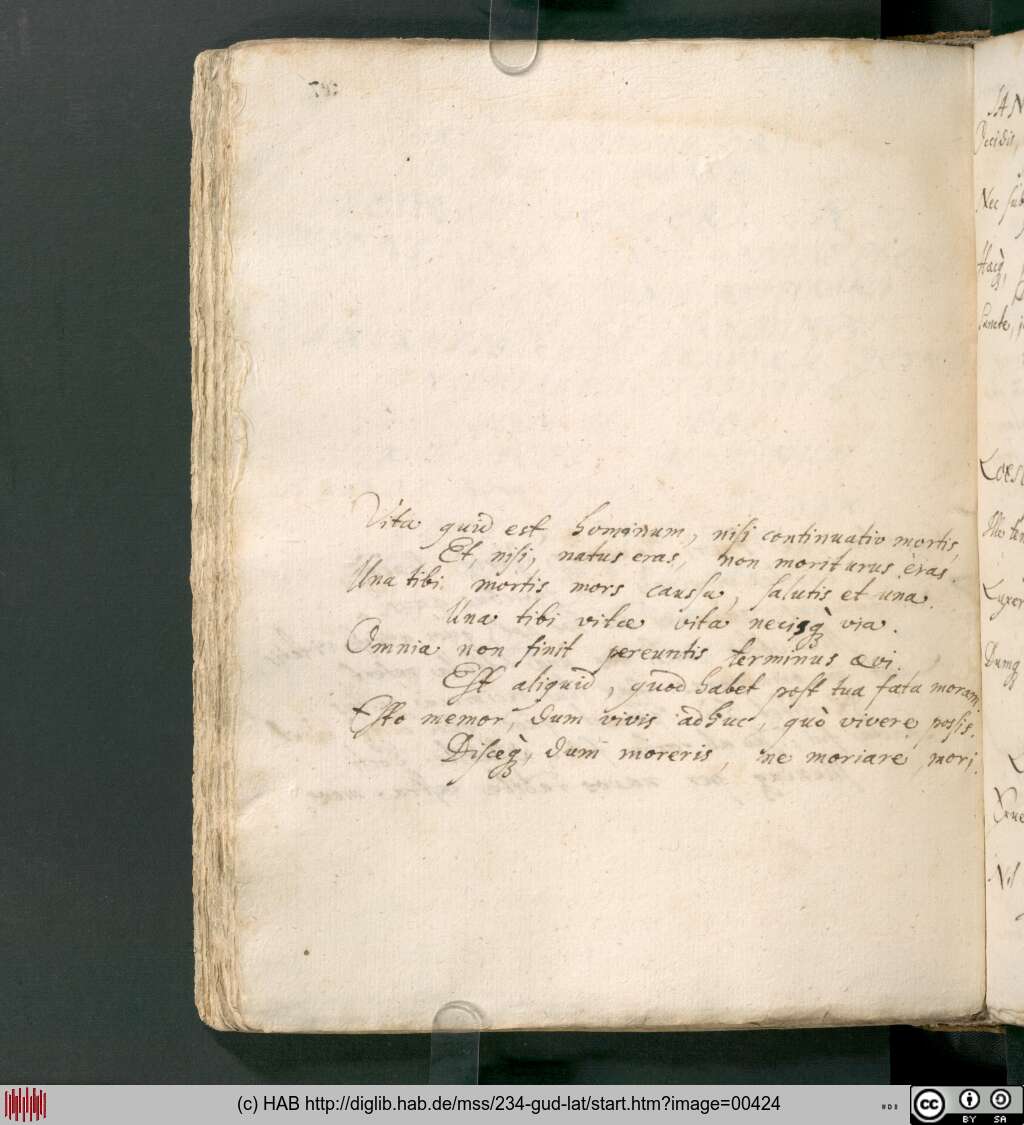 Vita quid est hominum, nisi continuatio mortis,
Et, nisi, natus eras, non moriturus eras.
Una tibi mortis mors caussa, salutis et una.
Una tibi vitæ vita necisq̀ via.
Omnia non finit pereuntis terminus ævi.
Est aliquid, quod habet post tua fata moram,
Esto memor, dum vivis adhuc, quò vivere possis.
Disceq̀, dum moreris, ne moriare, mori.
Occidis,
Nec sub
Hacq̀,
Sancte,
Dumq
Nil
(c) HAB http://diglib.hab.de/mss/234-gud-lat/start.htm?image=00424
cc BY SA